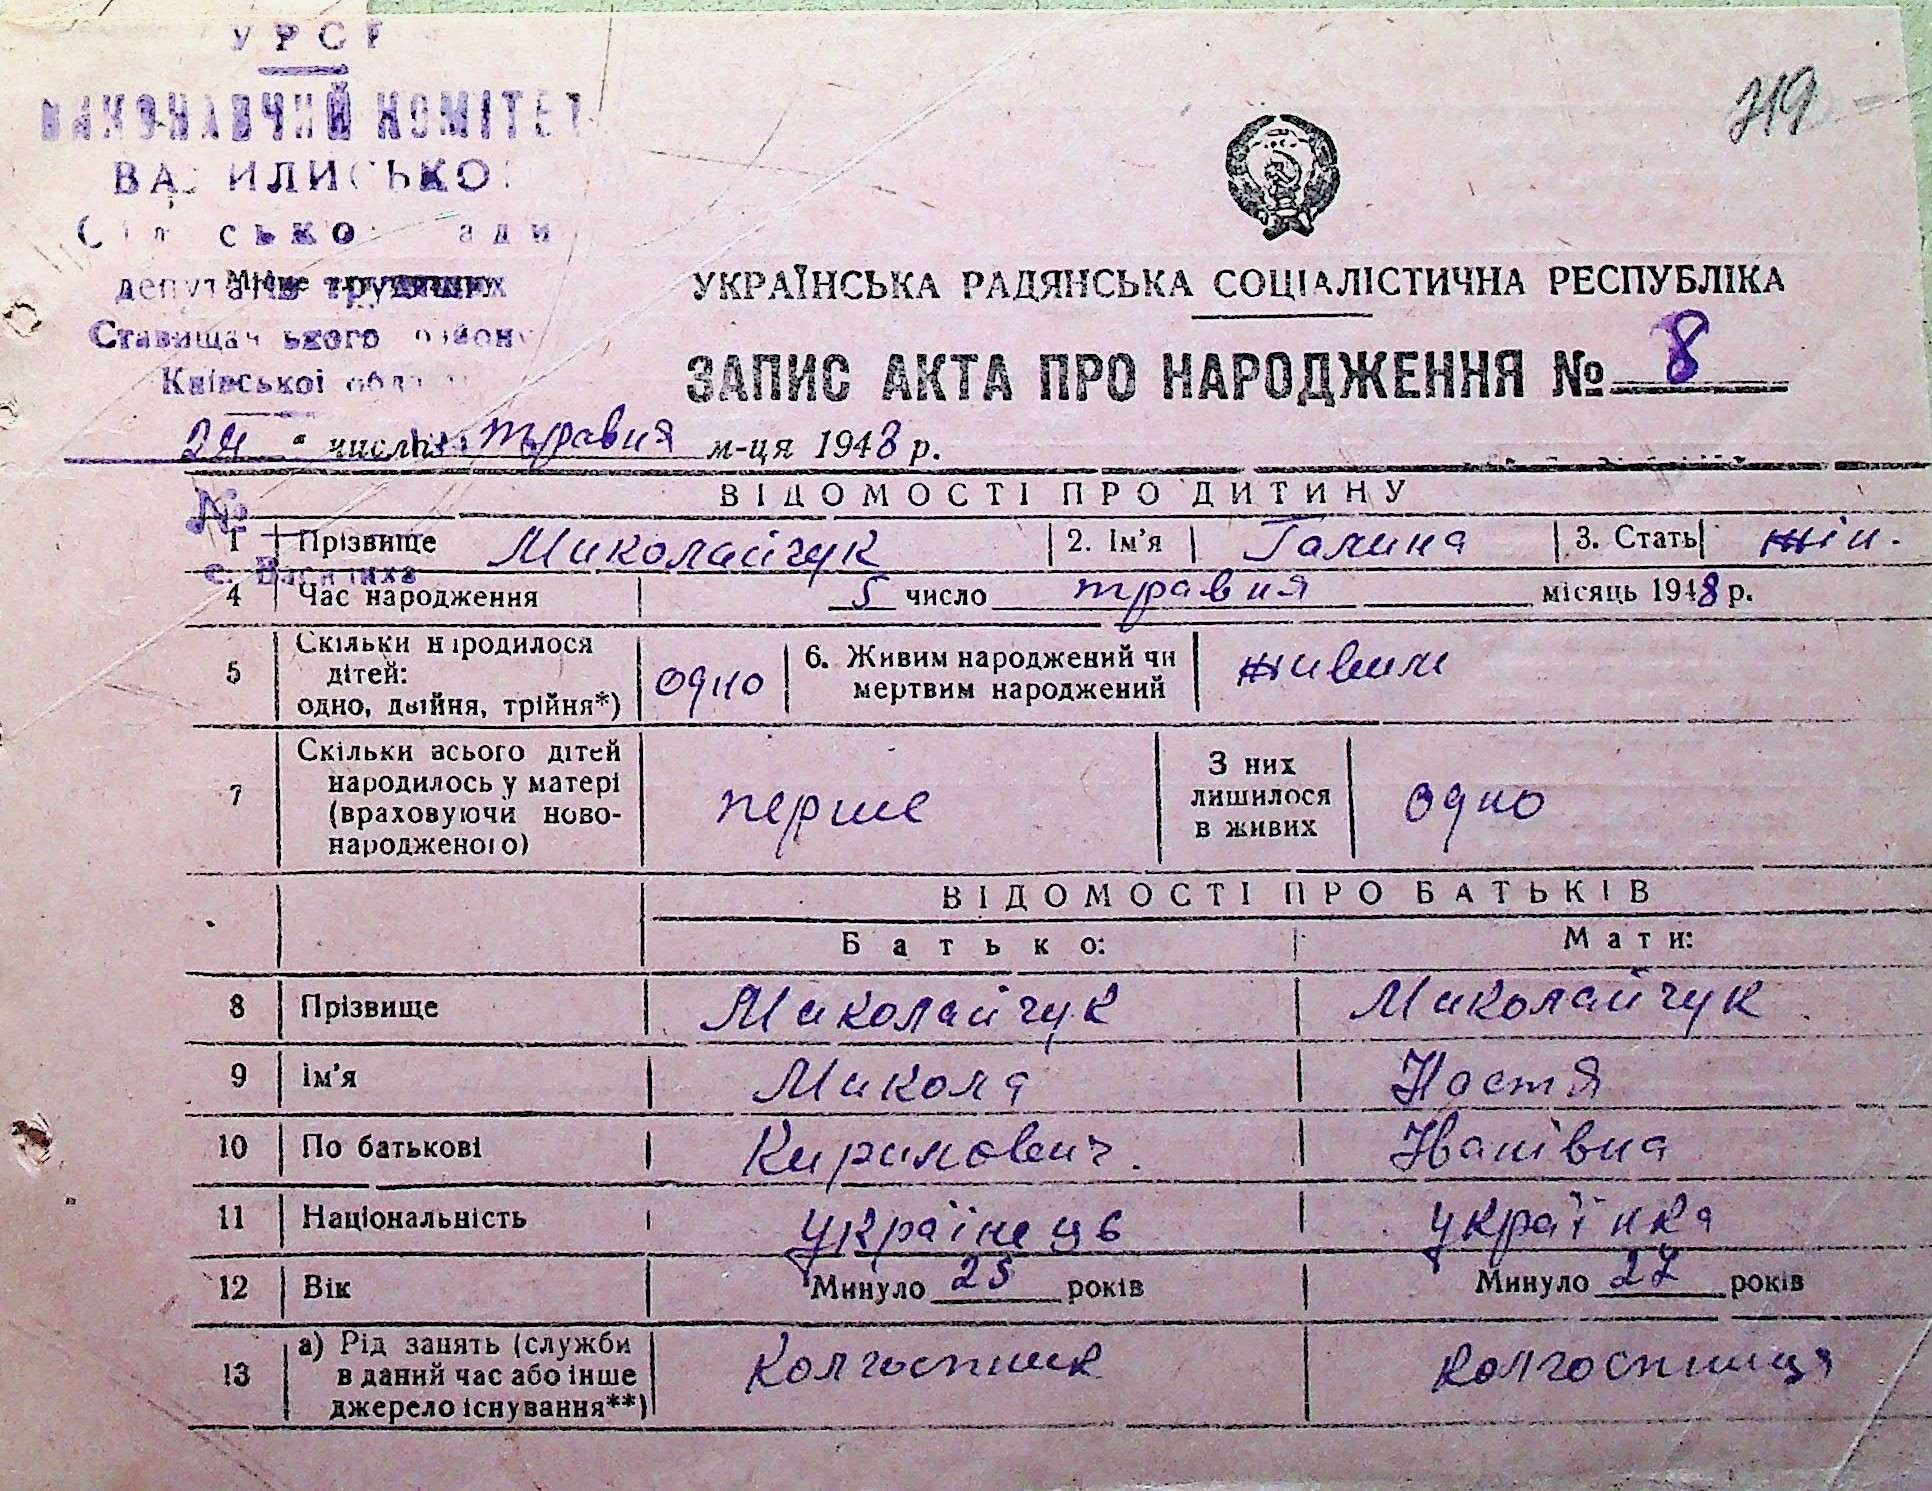 УРСР
ВИКОНАВЧИЙ КОМІТЕТ
ВАСИЛИСЬКОЇ
Сільської ради
депутатів трудящих
Місце
Ставищанського району
Київської області
719
УКРАЇНСЬКА РАДЯНСЬКА СОЦІАЛІСТИЧНА РЕСПУБЛІКА
ЗАПИС АКТА ПРО НАРОДЖЕННЯ № 8
24 " числа травня м-ця 1948 р.
№
ВІДОМОСТІ ПРО ДИТИНУ
1 Прізвище Миколайчук 2. Ім'я Галина 3. Стать жін.
с. Василиха
4 Час народження 5 число травня місяць 1948 р.
5 Скільки народилося дітей: одно, двійня, трійня*) одно 6. Живим народжений чи мертвим народжений живим
7 Скільки всього дітей народилось у матері (враховуючи ново-народженого) перше З них лишилося в живих одно
ВІДОМОСТІ ПРО БАТЬКІВ
Батько: Мати:
8 Прізвище Миколайчук Миколайчук
9 Ім'я Микола Настя
10 По батькові Кирилович. Іванівна
11 Національність українець українка
12 Вік Минуло 25 років Минуло 27 років
13 а) Рід занять (служби в даний час або інше джерело існування**) Колгоспник колгоспниця